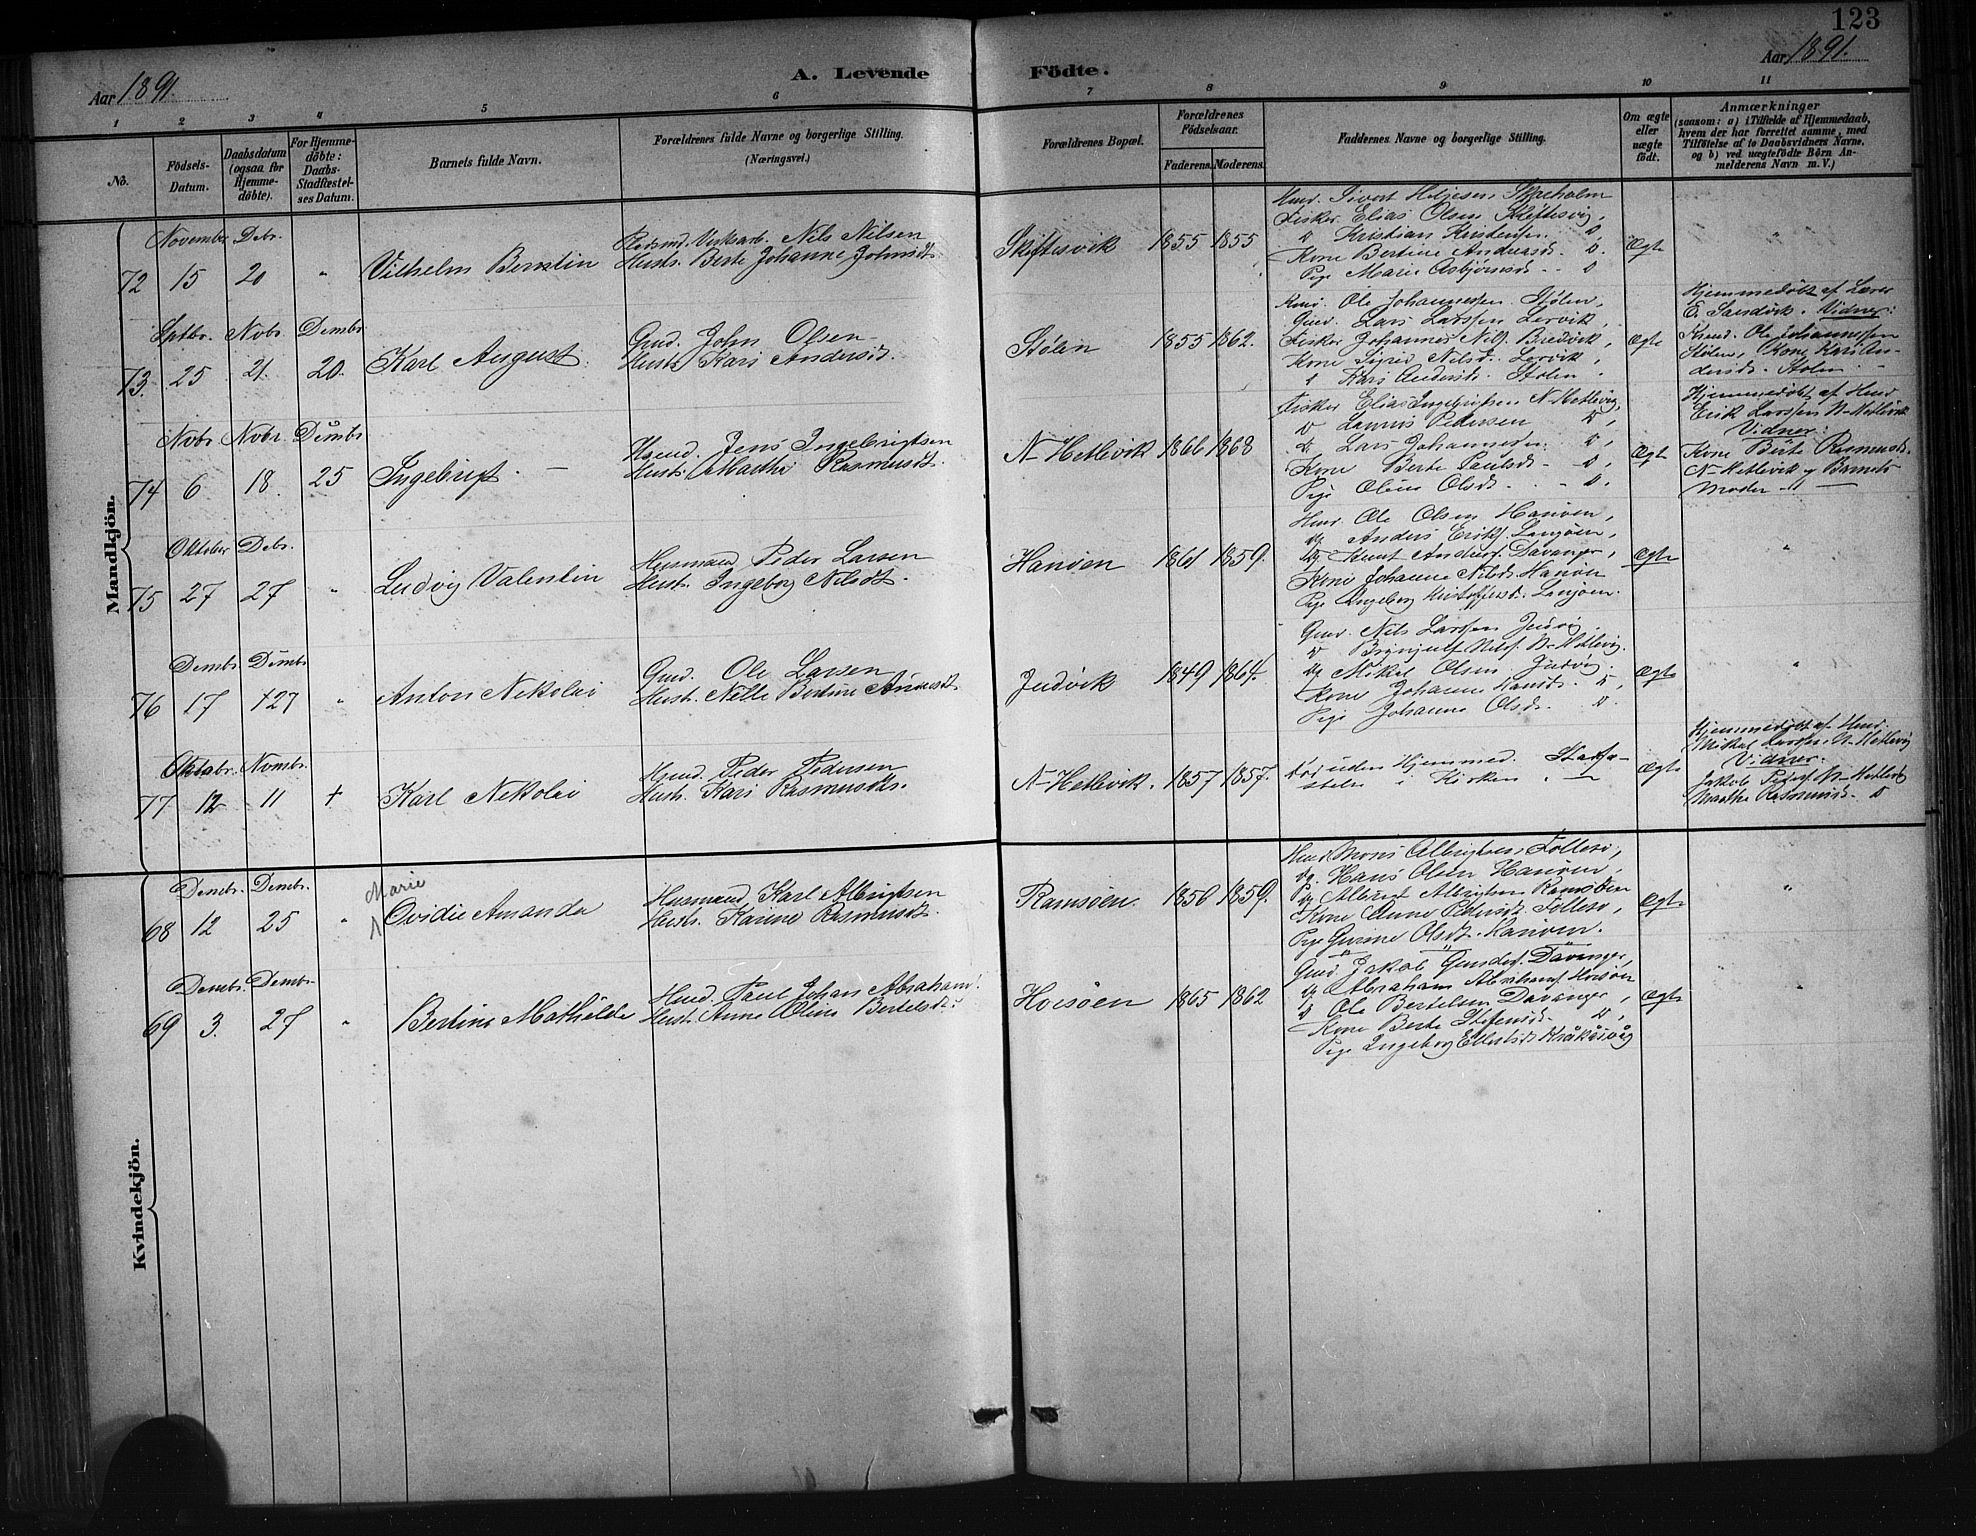 123
Aar 1891.
A. Levende Födte.
Aar 1891.
1 2 3 4 5 6 7 8 9 10 11
No.
Födsels-Datum.
Daabsdatum (ogsaa for Hjemme-döbte).
For Hjemme-döbte: Daabs-Stadfæstel-ses Datum.
Barnets fulde Navn.
Forældrenes fulde Navne og borgerlige Stilling.
(Næringsvei.)
Forældrenes Bopæl.
Forældrenes Födselsaar.
Faderens. Moderens.
Faddernes Navne og borgerlige Stilling.
Om ægte eller uægte födt.
Anmærkninger
(saasom: a) i Tilfælde af Hjemmedaab, hvem der har forrettet samme, med Tilföielse af to Daabsvidners Navne, og b) ved uægtefödte Börn An-melderens Navn m. V.)
Mandkjön.
72
November 15
Debr. 20
"
Vilhelm Berntin
Nils Nilsen
Hustr. Berte Johanne Johnsdt.
Skiftesvik
1855 1855
Sivert
Fisker Elias Olsen Skiftesvig,
Kristian
Kone Bertine Andreasd. D.
Pige Marie Asbjørnsd. D
Ægte
"
73.
Sptbr. 25
Novbr. 21.
Dembr 20.
Karl August.
Gmd. John Olsen
Hustr. Kari Andersd.
Stølen
1855 1862.
Ole Johannessen Stølen,
Gmd. Lars Larssen Lervik,
Fisker Johannes Nils. Bredvik,
Kone Nilsd. Lervik,
Kari Andersd. Stølen
Ægte
Hjemmedøbt af Lærer
E. Sandvik. Vidner:
Ole Johannessen
Stølen, Kone Kari An-
dersd. Stølen
74
Novbr 6
Novbr. 18.
Dembr 25
Ingebrigt.
Jens Ingebrigtsen
Hustr. Marthe Rasmusdt.
N-Hetlevik
1866 1868
Fisker Elias Ingebrigtsen N-Hetlevig,
Pedersen D,
Lars Johannesen D,
Kone Berte Paulsd. D,
Pige Oline Olsd. D.
Ægte
Hjemmedøbt af
Erik Larssen N-Hetlevik
Vidner:
Kone Berte Rasmusd.
N-Hetlevik og Barnets
Moder
75
Oktober 27
Debr. 27
"
Ludvig Valentin
Husmand Peder Larsen
Hustr. Ingeborg Nilsdt.
Hanøen
1861 1859.
Ole Olsen Hanøen,
Anders Eriks.
Knut Anders. Davanger,
Kone Johanne Nilsd. Hanøen
Pige Ingeborg
Ægte
"
76
Dembr 17
Dembr +27
"
Anton Nikolai
Gmd. Ole Larsen
Hustr. Nille Bertine
Judvik
1849 1864.
Gmd. Nils Larssen Judvig.
Brynjulf Nils. N-Hetlevig.
Mikal Olsen Judvig.
Kone Johanne Hansd. D,
Pige Johanne Olsd. D.
Ægte
"
77
Oktobr. 12
Novmbr. 11
+
Karl Nikolai
Peder Pedersen
Hustr. Kari Rasmusdt.
N-Hetlevik.
1857 1857.
Død uden Hjemmed. Stadfæ-
stelse i Kirken.
Ægte
Hjemmedøbt af
Mikal Larssen N-Hetlevig
Vidner:
Jakob N-Hetlevig
Marthe Rasmusd. D
Kvindekjön.
68
Dembr. 12
Dembr. 25
"
Marie
Ovidie Amanda
Husmand Karl Albrigtsen
Hustr. Karine Rasmusdt.
Ramsøen
1856 1859.
Mons Albrigtsen Follesø,
Hans Olsen Hanøen,
Albrigtsen Ramsøen
Kone Anne Follesø,
Pige Gurine Olsdt. Hanøen.
Ægte
"
69
Dembr. 3.
Dembr. 27
"
Bertine Mathilde
Paul Johan Abrahams.
Hustr. Anne Oline Bertelsd.
Hoisøen
1865 1862
Gmd. Jakob Davanger,
Abraham Abrahams. Hoisøen
Ole Bertelsen Davanger,
Kone Berte D,
Pige Ingeborg Kråkåsvåg
Ægte
"